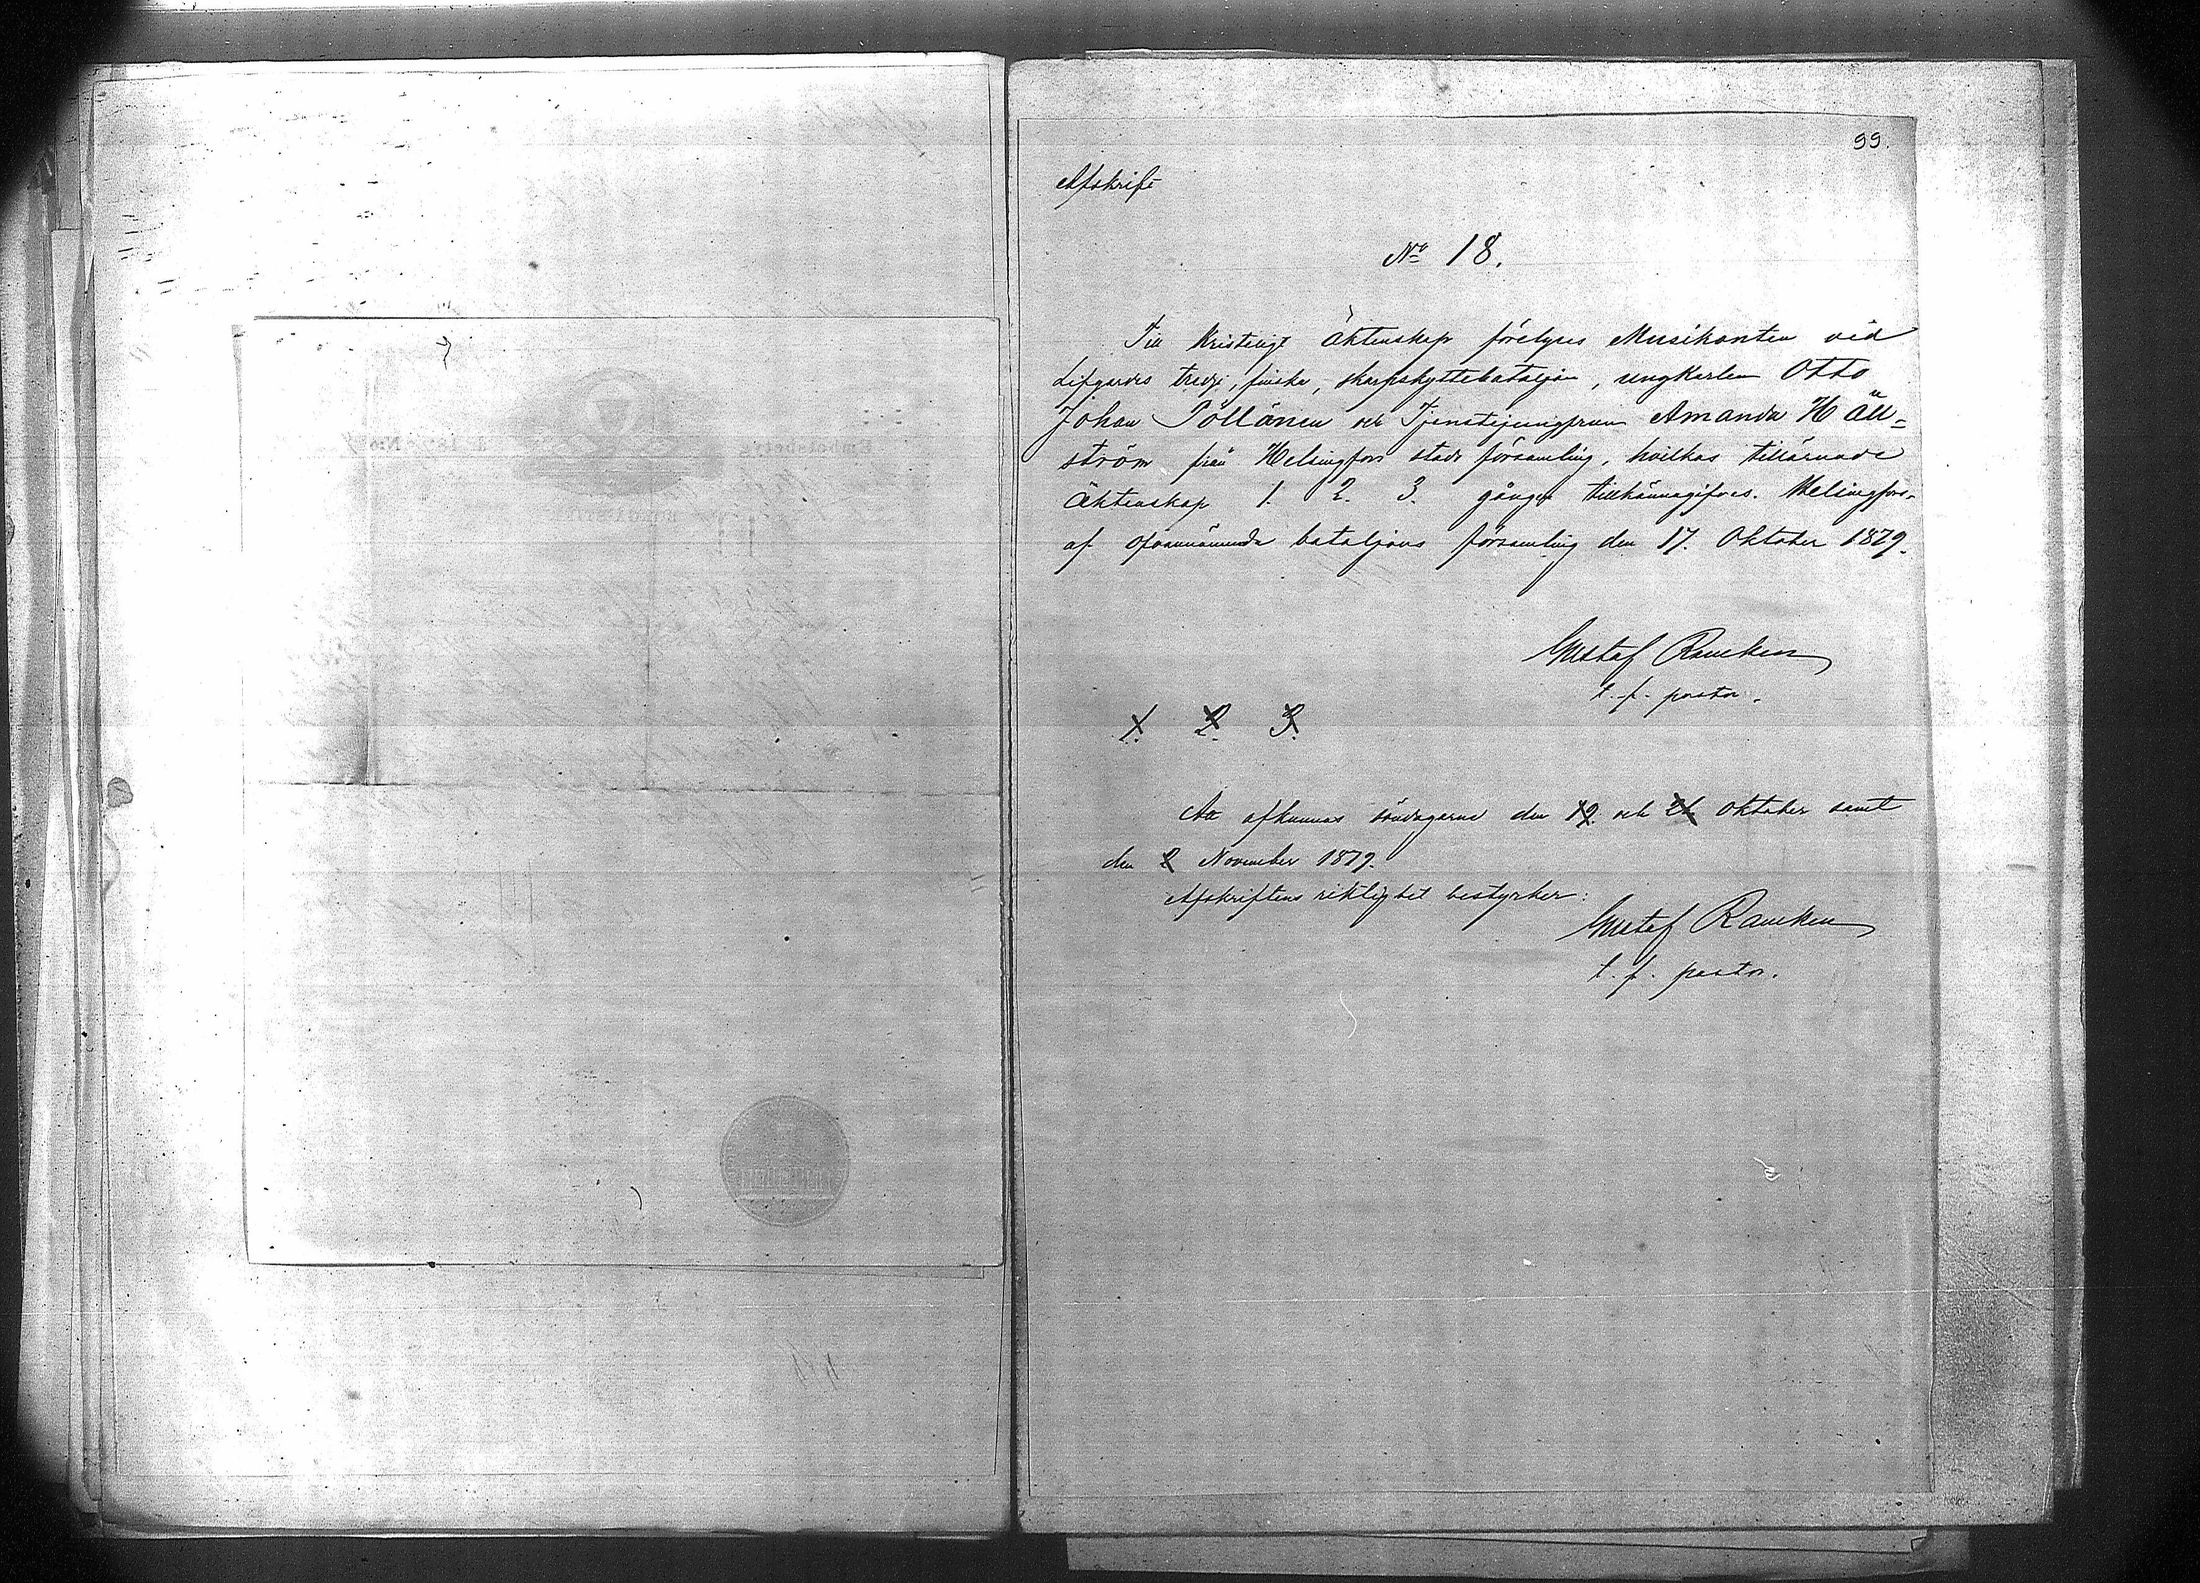 99.
Afskrift
No 18.
Till Kristeligt Äktenskap förelyses Musikanten vid
Lifgardes tredje, finska, skarpskyttebataljon, ungkarlen Otto
Johan Pöllänen och Tjenstejungfrun Amanda Häll=
ström från Helsingfors stads församling, hvilkas tillärnade
äktenskap 1. 2. 3. gången tillkännagifves. Helsingfors
af ofvannämnda bataljons församling den 17. Oktober 1879.
Gustaf Rancken
t. f. pastor.
1. 2. 3.
Att afkunnas söndagarne den 19. och Oktober samt
den 2 November 1879.
Afskriftens riktighet bestyrker:
Gustaf Rancken
t. f. pastor.